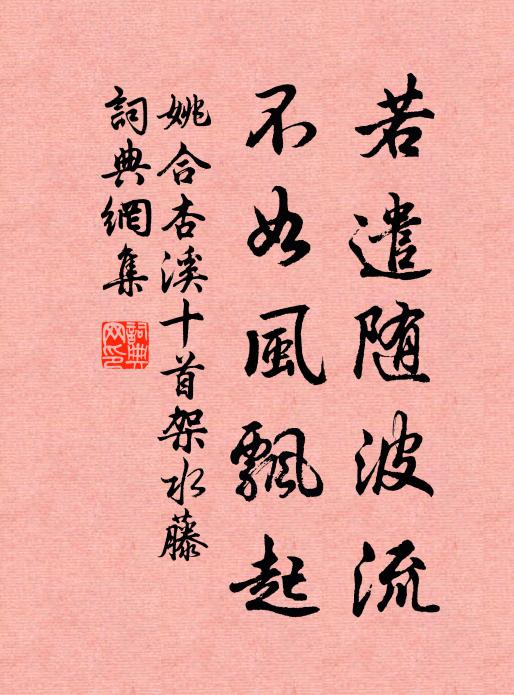 若遣随波流
不如風飄起
姚合杏溪十首架水藤
詞典網集
詞典
网印